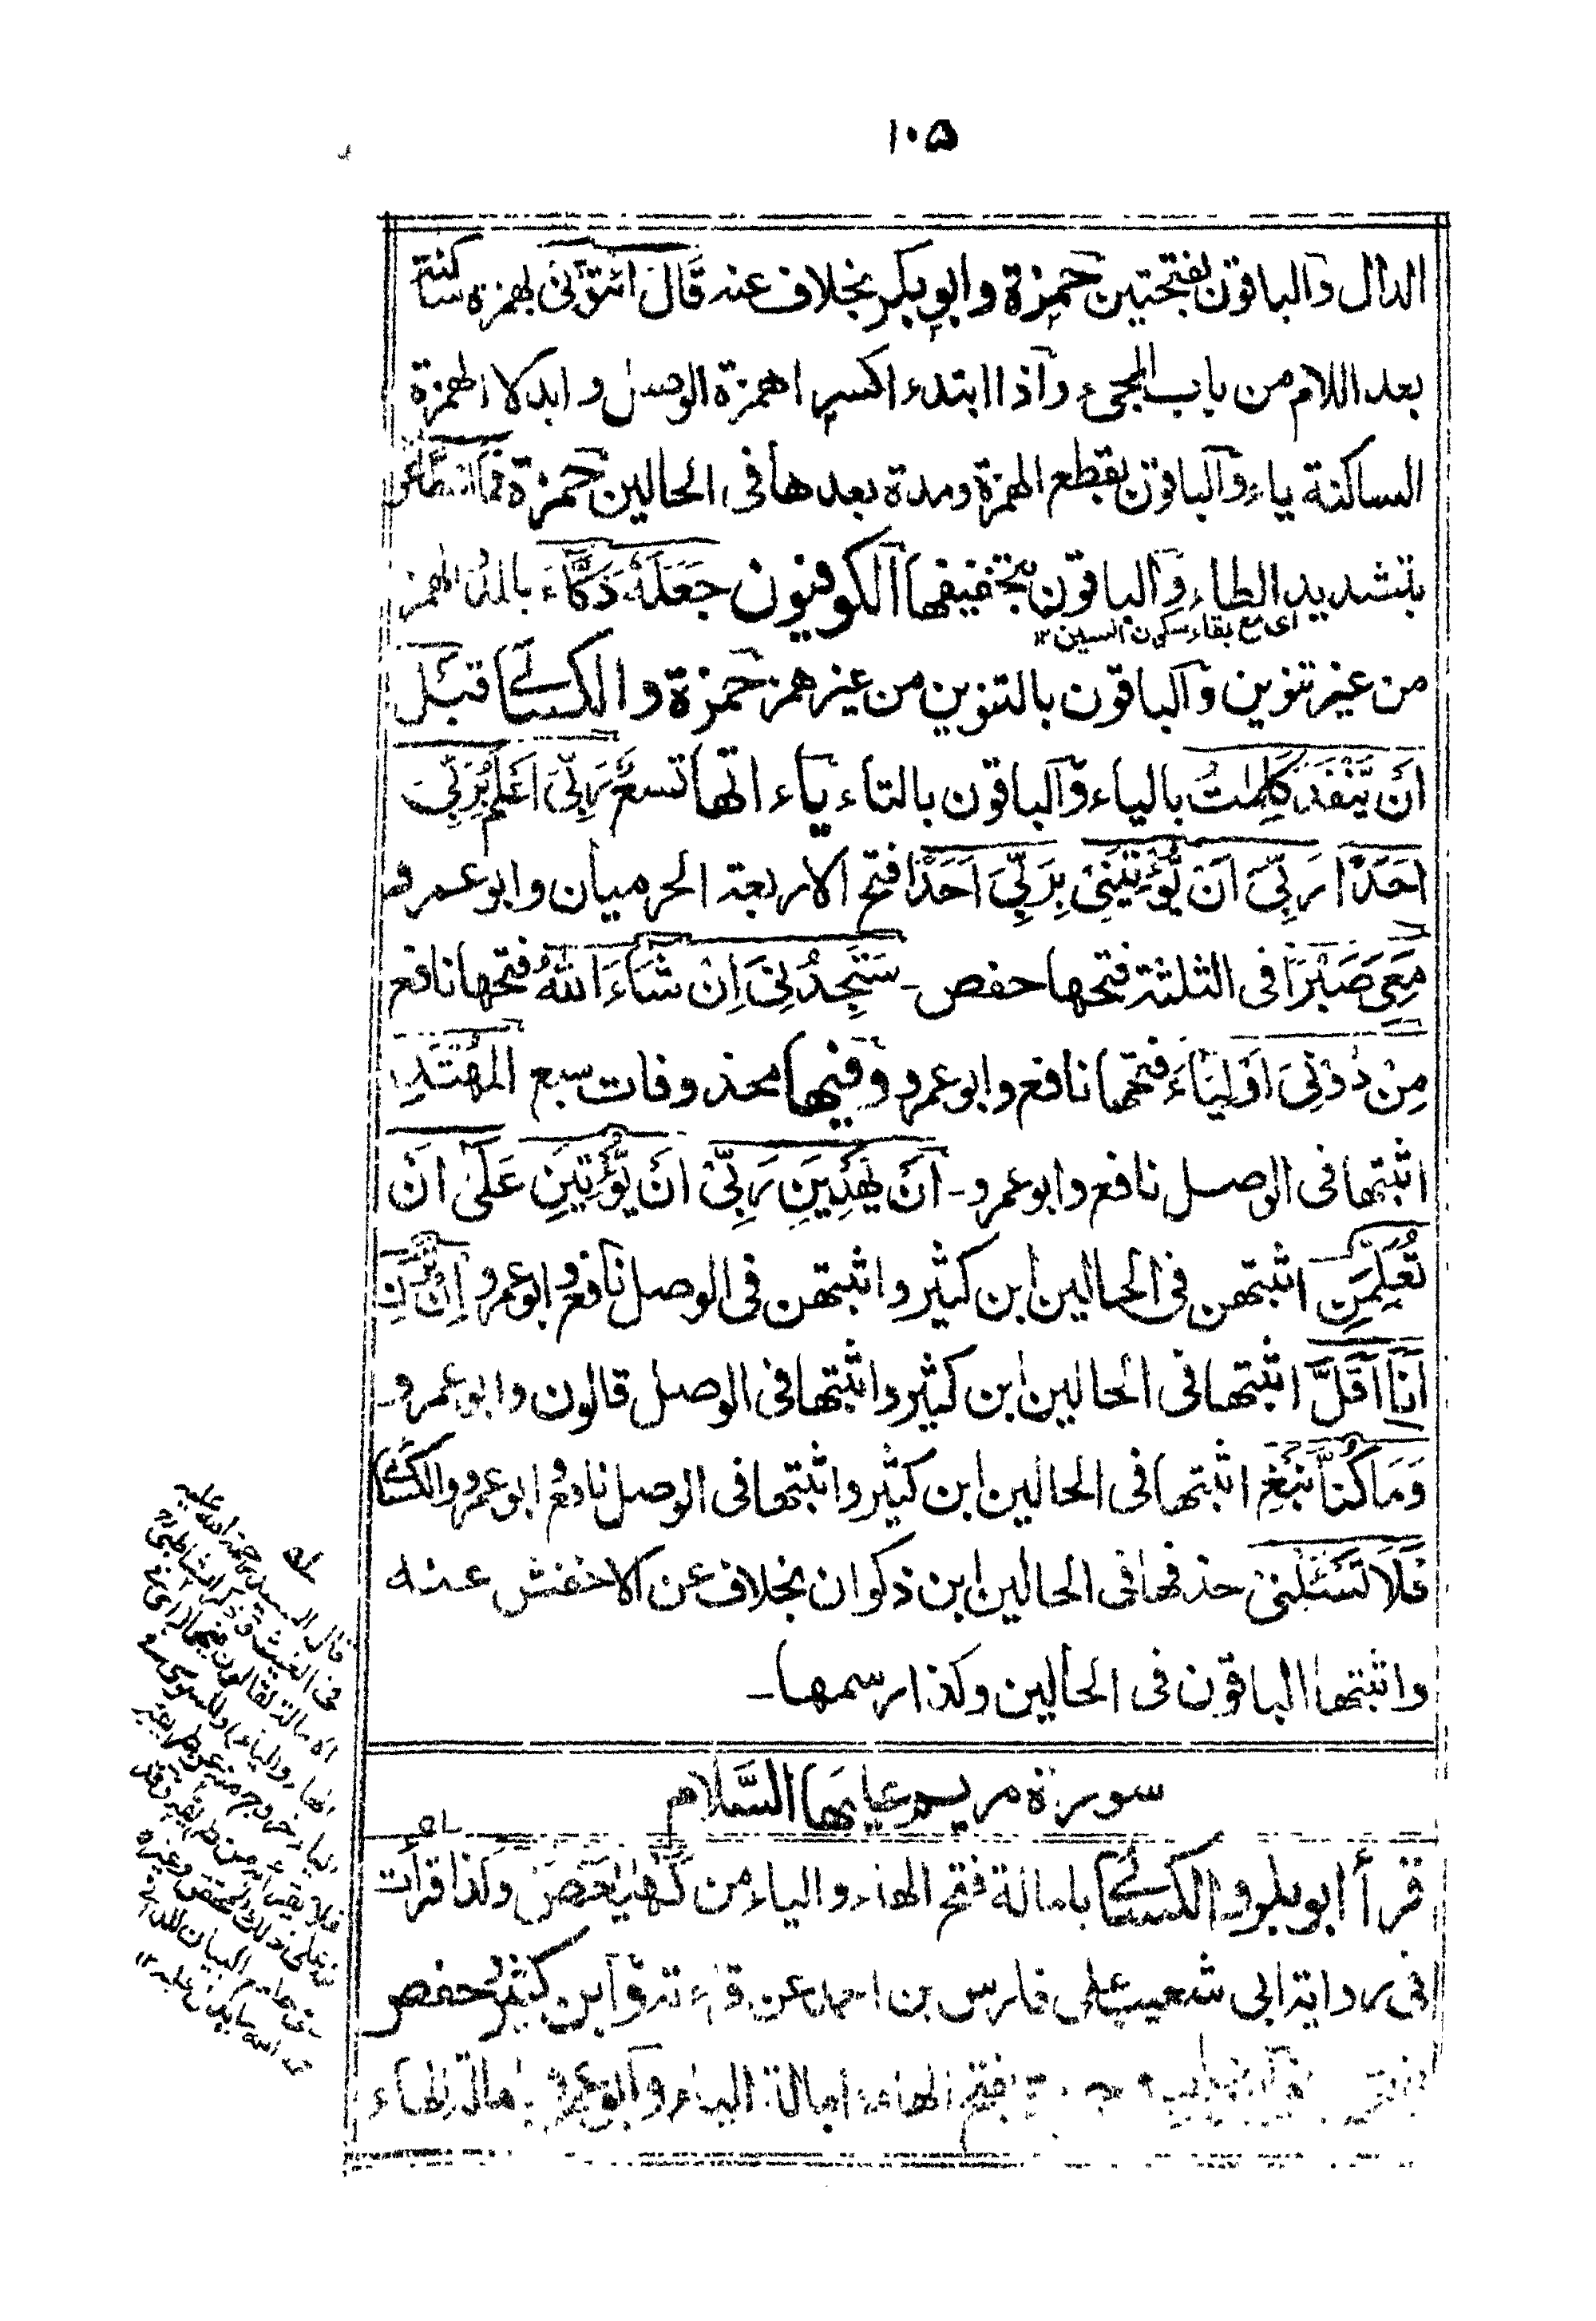 ١٠٥
الدال والباقون بفتحتين حمزة وابو بكر بخلاف عنه قَالَ ائْتُوْنِیْ بهمزة ساكنة
بعد اللام من باب المجیء واذا ابتدء اكسرا همزة الوصل وابدلا الهمزة
الساكنة ياء والباقون بقطع الهمزة ومدة بعدها فى الحالين حمزة فَمَا اسْطَّاعُوْا
بتشديد الطاء والباقون بتخفيفها الكوفيون جَعَلَهٗ دَكَّآءَ بالمد والهمز
ای مع بقاء سكون السين ١٢
من غير تنوين والباقون بالتنوين من غير همز حمزة والكسائی قبل
اَنْ يَّنْفَدَ كَلِمٰتُ بالياء والباقون بالتاء ياء اتها تسع رَبِّیَ اَعْلَمُ بِرَبِّیَ
اَحَدًا رَبِّیَ اَنْ يُّؤْتِيَنِیْ بِرَبِّیَ اَحَدًا فتح الاربعة الحرميان وابو عمرو
مَعِیَ صَبْرًا فى الثلثة فتحها حفص ـ سَتَجِدُنِیَ اِنْ شَآءَ اللّٰهُ فتحها نافع
مِنْ دُوْنِیَ اَوْلِيَآءَ فتحها نافع وابو عمرو وفيها محذوفات سبع الْمُهْتَدِ
اثبتها فى الوصل نافع وابو عمرو ـ اَنْ يَّهْدِيَنِ رَبِّیْ اَنْ يُّؤْتِيَنِ عَلٰی اَنْ
تُعَلِّمَنِ اثبتهن فى الحالين ابن كثير واثبتهن فى الوصل نافع وابو عمرو اِنْ تَرَنِ
اَنَا اَقَلَّ اثبتها فى الحالين ابن كثير واثبتها فى الوصل قالون وابو عمرو ـ
وَمَا كُنَّا نَبْغِ اثبتها فى الحالين ابن كثير واثبتها فى الوصل نافع وابو عمرو والكسائی
فَلَا تَسْئَلْنِیْ حذفها فى الحالين ابن ذكوان بخلاف عن الاخفش عنه
واثبتها الباقون فى الحالين وكذا رسمها ـ
سورة مريم عليها السَّلام
قرأ ابو بكر والكسائی بامالة فتح الهاء والياء من كٓهٰيٰعٓصٓ وكذا قرأت
فى رواية ابی شعيب على فارس بن احمد عن قراءته وابن كثير وحفص
بفتح الهاء وامالة الياء وابو عمرو بامالة الهاء
قال السيد رحمة الله عليه
فى الغيث وذكر الشاطبی
الامالة لقالون فيهما (ای فى
الهاء والياء) وللسوسی فى
الياء خروج منه عن طريقه